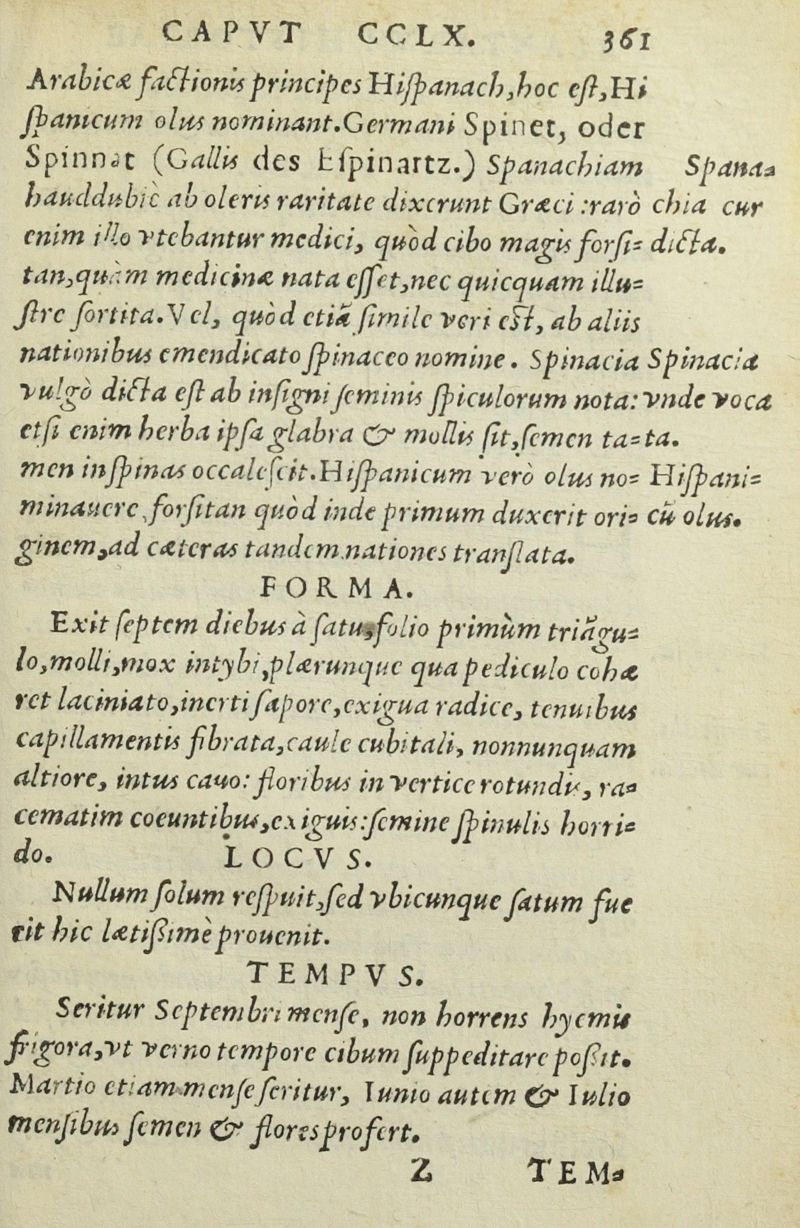 CAPVT CCLX. 361
Arabicæ factionis principes Hiſpanach, hoc eſt, Hi
ſpanicum olus nominant. Germani Spinet, oder
Spinnat (Gallis des Eſpinartz.) Spanachiam
hauddubiè ab oleris raritate dixerunt Græci: rarò
enim illo vtebantur medici, quòd cibo magis forſi=
tan, quàm medicinæ nata eſſet, nec quicquam illu=
ſtre ſortita. Vel, quòd etiã ſimile veri eſt, ab aliis
nationibus emendicato ſpinaceo nomine. Spinacia
vulgò dicta eſt ab inſigni ſeminis ſpiculorum nota: vnde
etſi enim herba ipſa glabra & mollis ſit, ſemen ta=
men in ſpinas occaleſcit. Hiſpanicum verò olus no=
minauere, forſitan quòd inde primum duxerit ori=
ginem, ad cæteras tandem nationes tranſlata.
Spana=
chia cur
dicta.
Spinacia
voca
ta.
Hiſpani=
cũ olus.
FORMA.
Exit ſeptem diebus à ſatu, folio primùm triãgu=
lo, molli, mox intybi, plærunque qua pediculo cohæ
ret laciniato, inerti ſapore, exigua radice, tenuibus
capillamentis fibrata, caule cubitali, nonnunquam
altiore, intus cauo: floribus in vertice rotundis, ra=
cematim coeuntibus, exiguis: ſemine ſpinulis horri=
do.
LOCVS.
Nullum ſolum reſpuit, ſed vbicunque ſatum fue
rit hic lætiſsimè prouenit.
TEMPVS.
Seritur Septembri menſe, non horrens hyemis
frigora, vt verno tempore cibum ſuppeditare poſsit.
Martio etiam menſe ſeritur, Iunio autem & Iulio
menſibus ſemen & flores profert.
Z TEM=